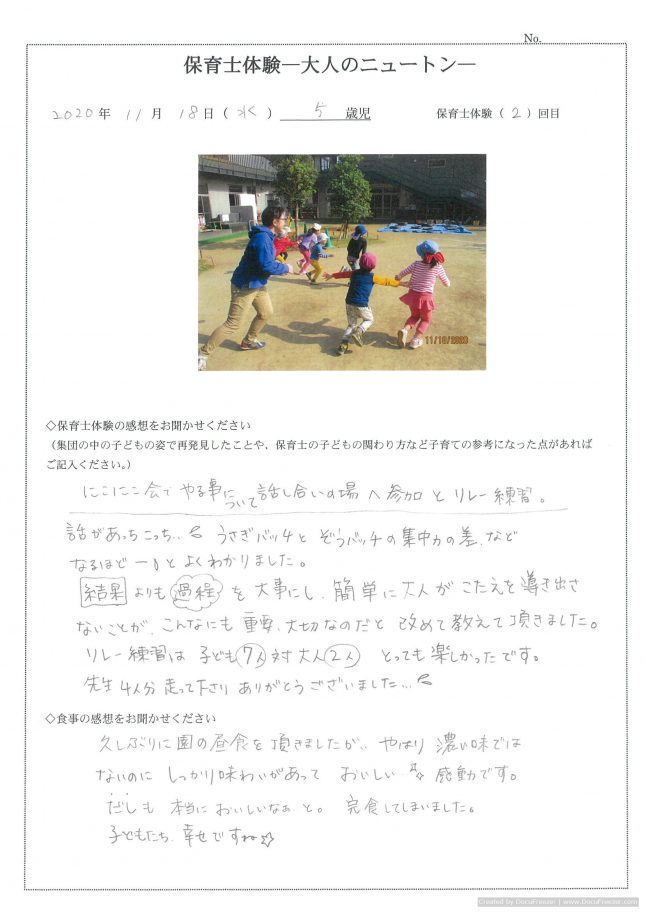 No.
保育士体験―大人のニュートン―
2020年 11月 18日(水) 5歳児 保育士体験(2)回目
11/18/2020
◇保育士体験の感想をお聞かせください
(集団の中の子どもの姿で再発見したことや、保育士の子どもの関わり方など子育ての参考になった点があれば
ご記入ください。)
にこにこ会でやる事について話し合いの場へ参加とリレー練習。
話があっちこっち.. うさぎバッチとぞうバッチの集中力の差、など
なるほどー!とよくわかりました。
結果よりも過程を大事にし、簡単に大人がこたえを導き出さ
ないことが、こんなにも重要、大切なのだと改めて教えて頂きました。
リレー練習は子ども7人対大人2人 とっても楽しかったです。
先生4人分走って下さりありがとうございました...
◇食事の感想をお聞かせください
久しぶりに園の昼食を頂きましたが、やはり濃い味では
ないのにしっかり味わいがあっておいしい 感動です。
だしも本当においしいなぁと。完食してしまいました。
子どもたち、幸せですね☆
Created by DocuFreezer | www.DocuFreezer.com